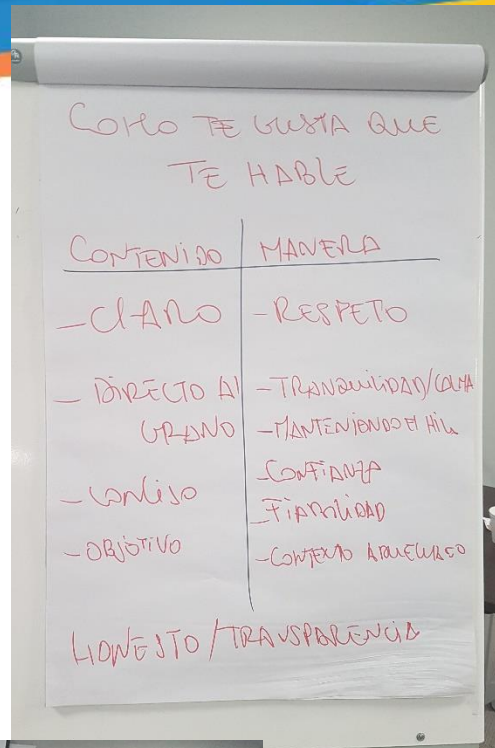 COMO TE GUSTA QUE
TE HABLE
CONTENIDO
MANERA
- CLARO
- RESPETO
- DIRECTO AL
GRANO
- TRANQUILIDAD/CALMA
- MANTENIENDO EL HILO
- CONFIANZA
- CONCISO
- FIABILIDAD
- OBJETIVO
- CONTEXTO ADECUADO
HONESTO / TRANSPARENCIA